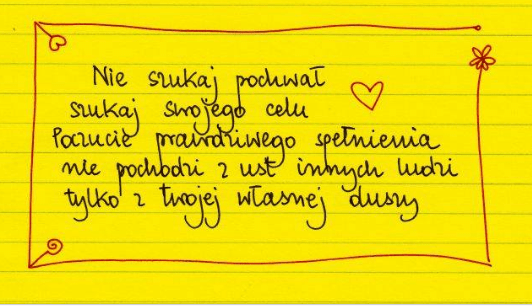 Nie szukaj pochwał
szukaj swojego celu
Poczucie prawdziwego spełnienia
nie pochodzi z ust innych ludzi
tylko z twojej własnej duszy